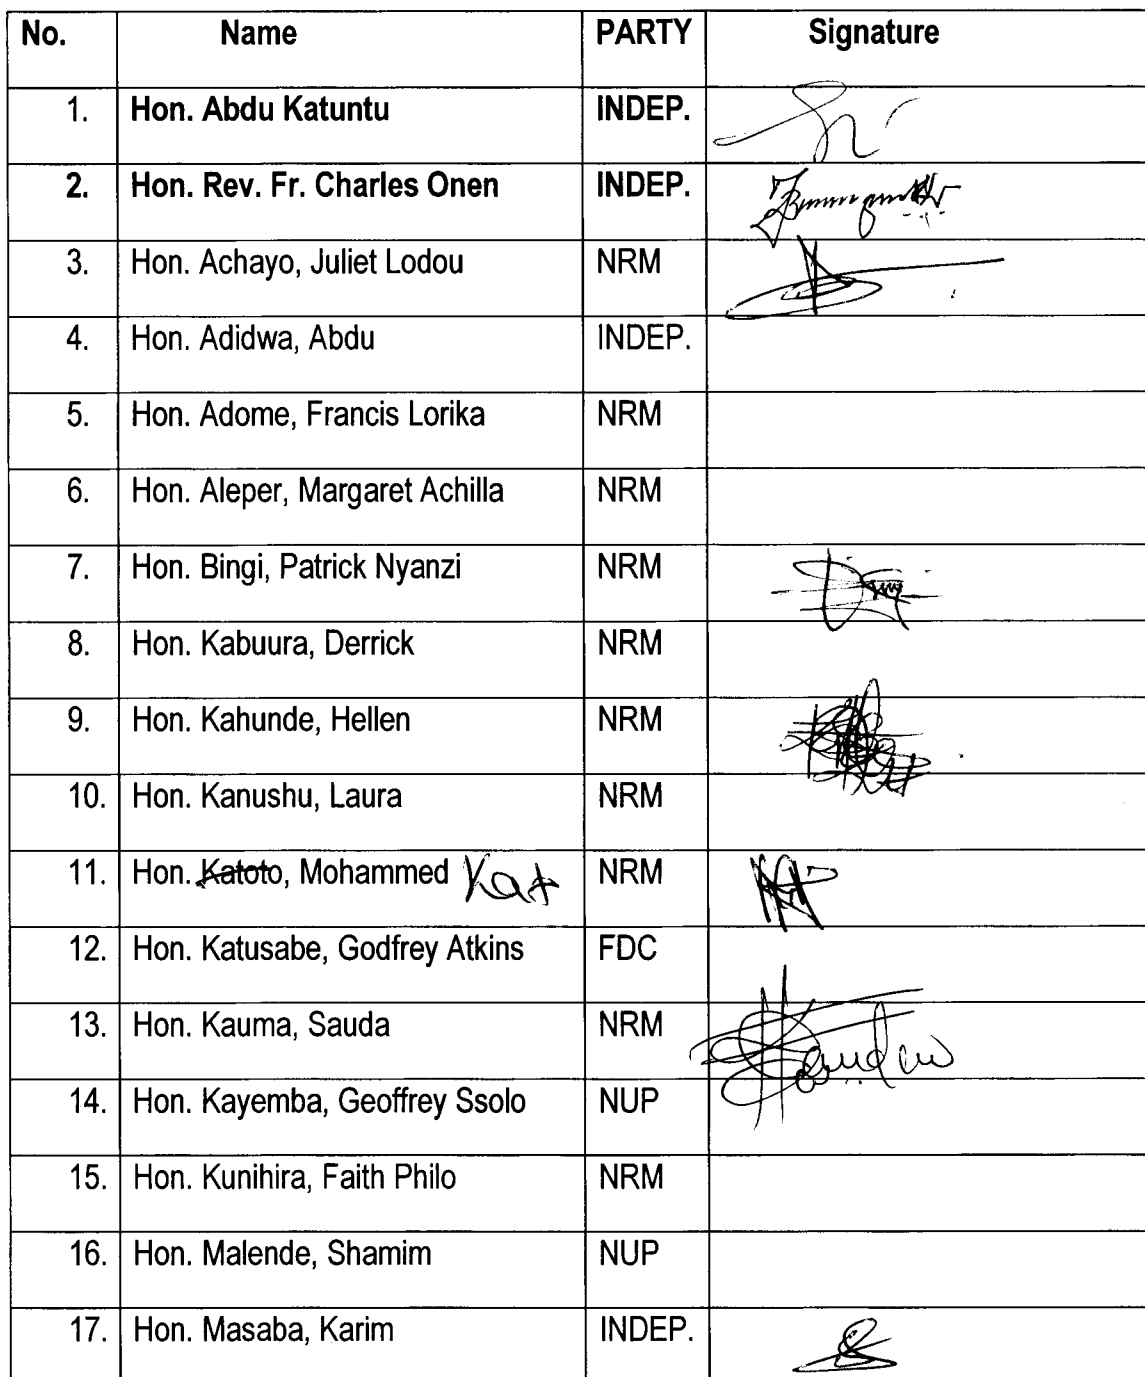 No. Name PARTY Signature
1. Hon. Abdu Katuntu INDEP.
2. Hon. Rev. Fr. Charles Onen INDEP.
3. Hon. Achayo, Juliet Lodou NRM
4. Hon. Adidwa, Abdu INDEP.
5. Hon. Adome, Francis Lorika NRM
6. Hon. Aleper, Margaret Achilla NRM
7. Hon. Bingi, Patrick Nyanzi NRM
8. Hon. Kabuura, Derrick NRM
9. Hon. Kahunde, Hellen NRM
10. Hon. Kanushu, Laura NRM
11. Hon. Katoto, Mohammed Kat NRM
12. Hon. Katusabe, Godfrey Atkins FDC
13. Hon. Kauma, Sauda NRM
14. Hon. Kayemba, Geoffrey Ssolo NUP
15. Hon. Kunihira, Faith Philo NRM
16. Hon. Malende, Shamim NUP
17. Hon. Masaba, Karim INDEP.